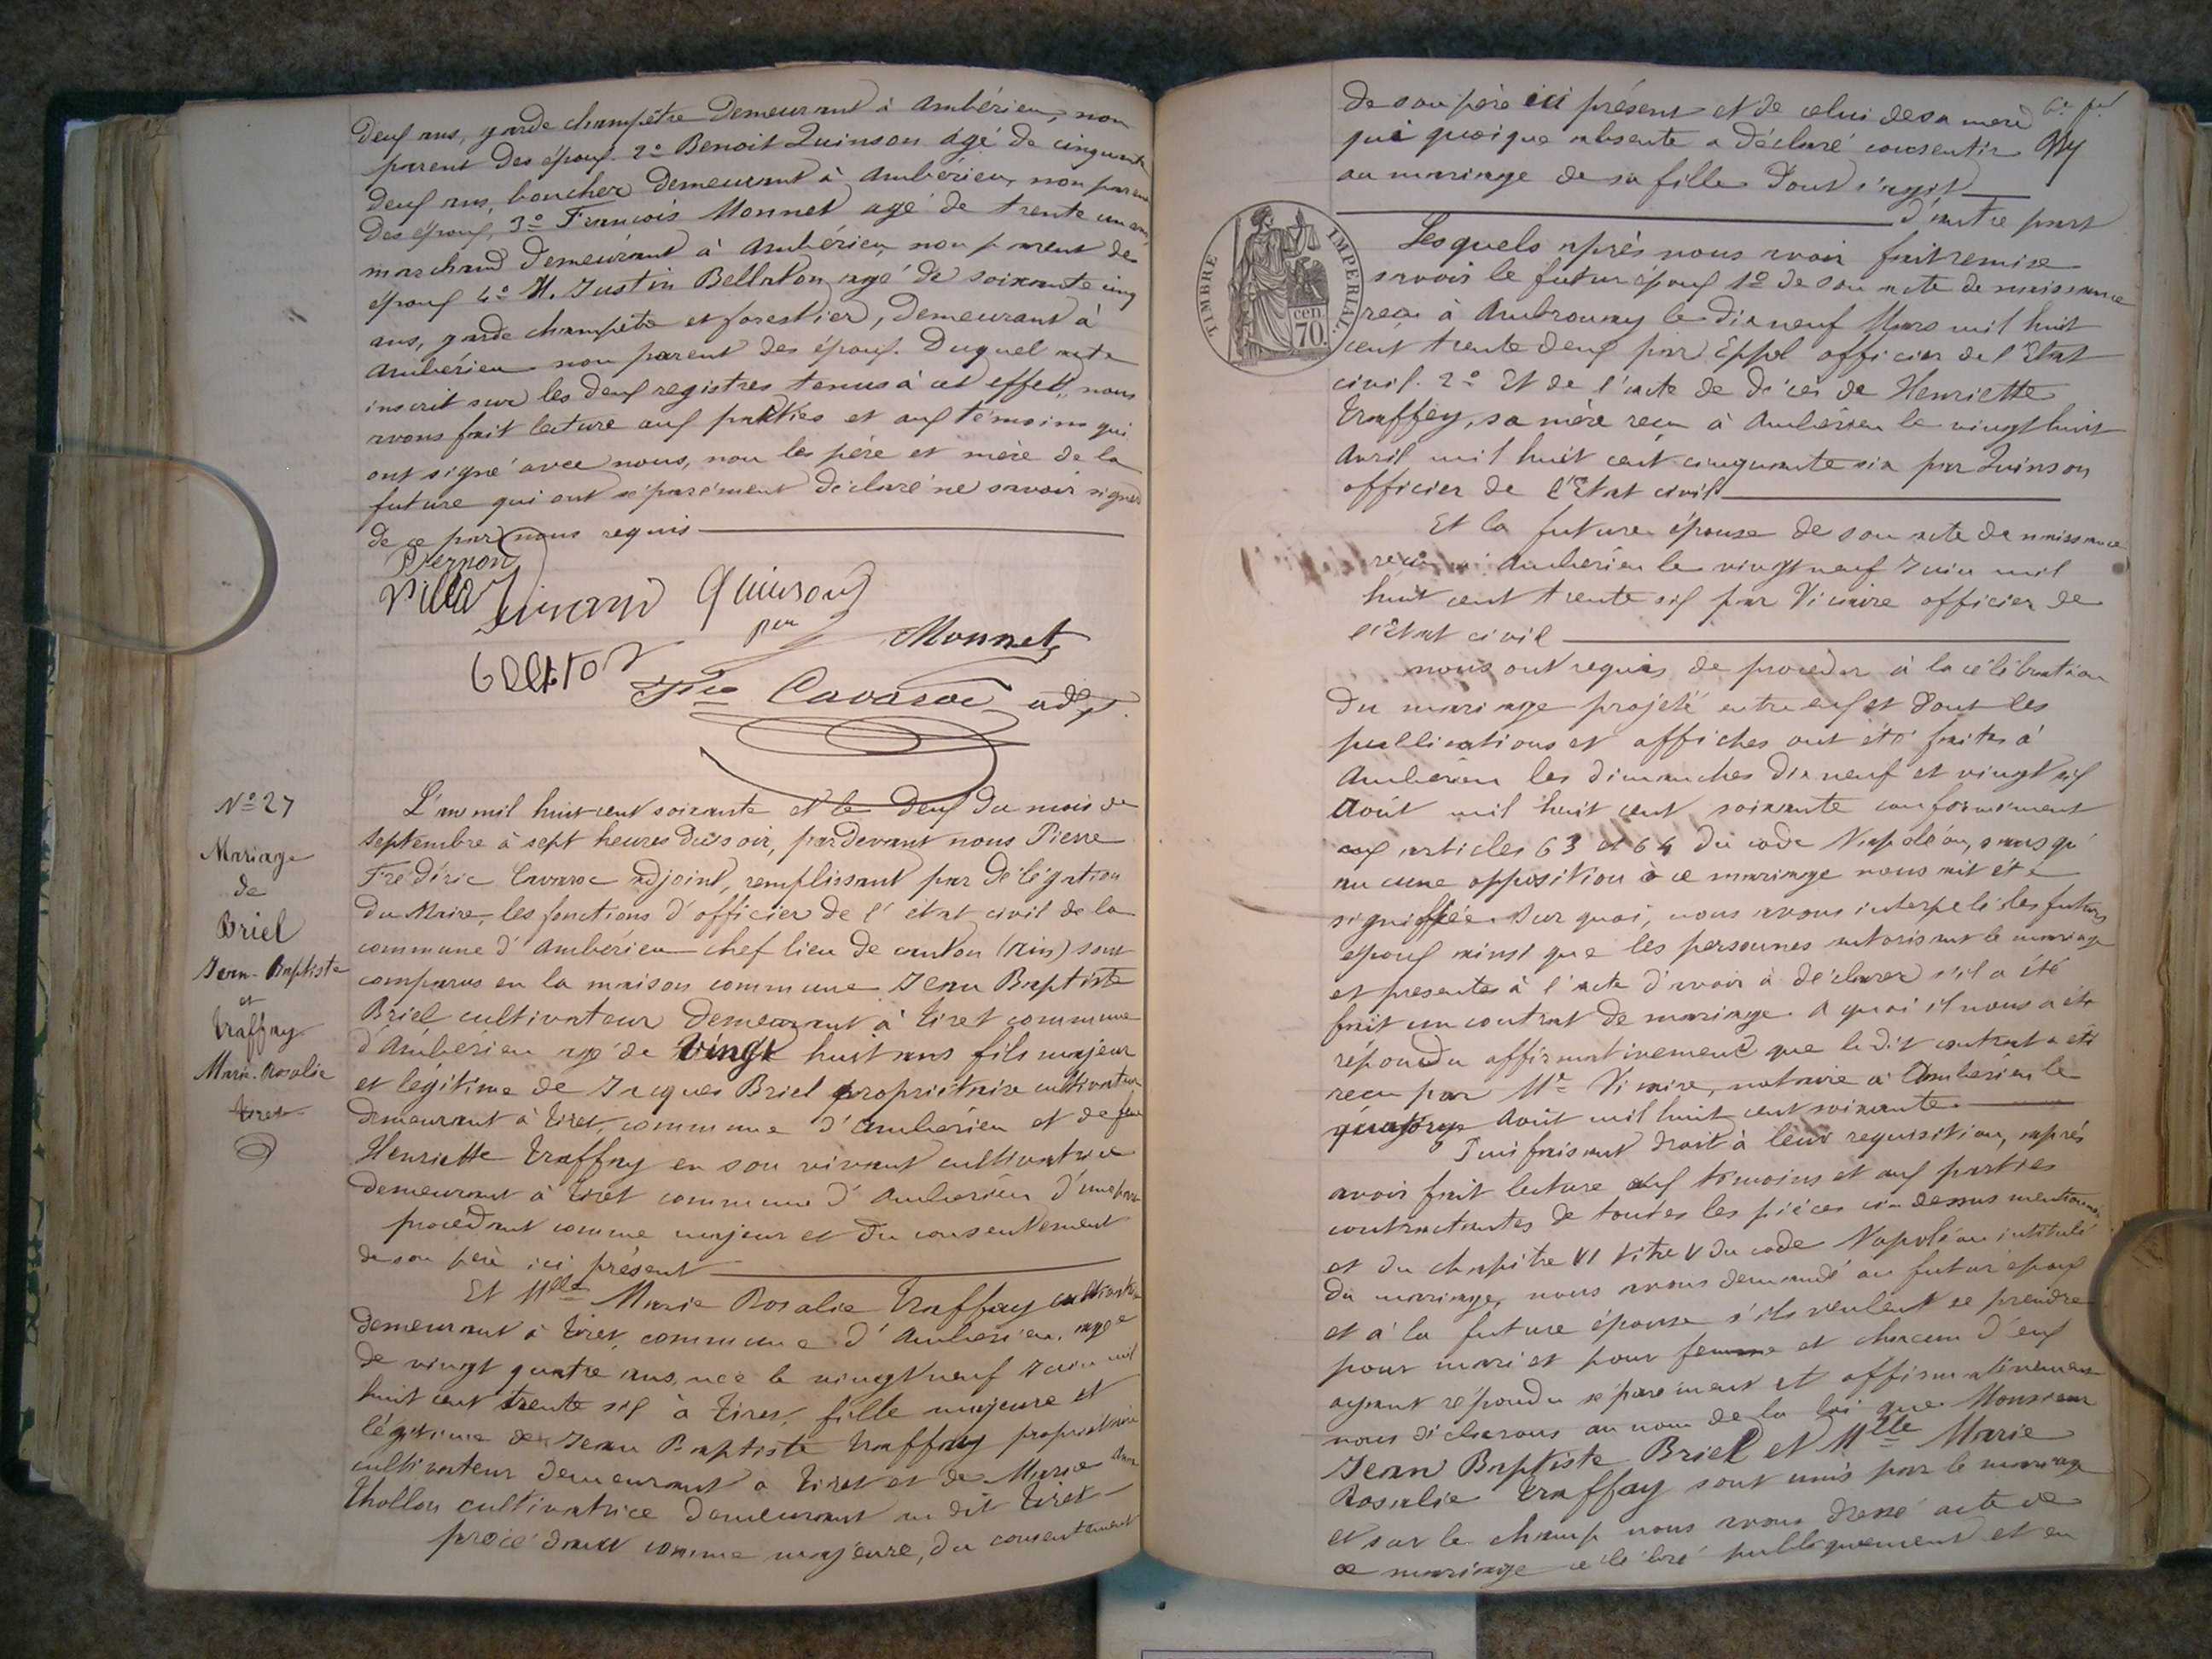 deux ans, garde champêtre demeurant à Ambérieu, non
parent des époux. 2º Benoit Quinson âgé de cinquante
deux ans, boucher demeurant à Ambérieu, non parent
des époux, 3º François Monnet agé de trente un ans,
marchand demeurant à Ambérieu non parent de
époux 4º M. Justin Bellaton agé de soixante cinq
ans, garde champêtre et forestier, demeurant à
Ambérieu non parent des époux. Duquel acte
inscrit sur les deux registres tenus à cet effet, nous
avons fait lecture aux parties et aux témoins qui
ont signé avec nous, non les père et mère de la
future qui ont séparément déclaré ne savoir signer
de ce par nous requis
Pernon
Quinson
Monnet
Cavaroc adjt.
Nº 27
Mariage
de
Briel
Jean-Baptiste
et
Traffay
Marie-Rosalie
Tiret
L'an mil huit cent soixante et le deux du mois de
Septembre à sept heures du soir, pardevant nous Pierre
Frédéric Cavaroc adjoint, remplissant par délégation
du Maire, les fonctions d'officier de l'état civil de la
commune d'Ambérieu chef lieu de canton (Ain) sont
comparus en la maison commune Jean Baptiste
Briel cultivateur demeurant à Tiret commune
d'Ambérieu agé de vingt huit ans fils majeur
et légitime de Jacques Briel propriétaire cultivateur
demeurant à Tiret, commune d'Ambérieu et de feu
Henriette Traffay en son vivant cultivatrice
demeurant à Tiret commune d'Ambérieu d'une part
procédant comme majeur et du consentement
de son père ici présent
Et Mlle Marie Rosalie Traffay cultivatrice
demeurant à Tiret, commune d'Ambérieu, agée
de vingt quatre ans, née le vingt neuf Juin mil
huit cent trente six à Tiret, fille majeure et
légitime de Jean Baptiste Traffay propriétaire
cultivateur demeurant à Tiret et de Marie
Thollon cultivatrice demeurant au dit Tiret
procédant comme majeure, du consentement
de son père ici présent et de celui de sa mère
qui quoique absente a déclaré consentir
au mariage de sa fille dont s'agit
d'autre part
TIMBRE IMPERIAL
cen. 70.
Lesquels après nous avoir fait remise
savoir le futur époux 1º de son acte de naissance
reçu à Ambronay le dix neuf Mars mil huit
cent trente deux par Eppel officier de l'Etat
civil. 2º Et de l'acte de décès de Henriette
Traffey, sa mère reçu à Ambérieu le vingt huit
Avril mil huit cent cinquante six par Quinson
officier de l'Etat civil
Et la future épouse de son acte de naissance
reçu à Ambérieu le vingt neuf Juin mil
huit cent trente six par Vicaire officier de
l'Etat civil
nous ont requis de procéder à la célébration
du mariage projeté entre eux et dont les
publications et affiches ont été faites à
Ambérieu les dimanches dix neuf et vingt six
Août mil huit cent soixante conformément
aux articles 63 et 64 du code Napoléon, sans qu'
aucune opposition à ce mariage nous ait été
signifiée. Sur quoi, nous avons interpelé les futurs
époux ainsi que les personnes autorisant le mariage
et presentes à l'acte d'avoir à déclarer s'il a été
fait un contrat de mariage. A quoi il nous a été
répondu affirmativement que le dit contrat a été
reçu par Me Vicaire, notaire à Ambérieu le
quatorze Août mil huit cent soixante.
Puis faisant droit à leur requisition, après
avoir fait lecture aux témoins et aux parties
contractantes de toutes les pièces ci-dessus mentionnées
et du chapitre VI titre V du code Napoléon intitulé
du mariage, nous avons demandé au futur époux
et à la future épouse s'ils veulent se prendre
pour mari et pour femme et chacun d'eux
ayant répondu séparément et affirmativement
nous déclarons au nom de la loi que Monsieur
Jean Baptiste Briel et Mlle Marie
Rosalie Traffay sont unis par le mariage
et sur le champ nous avons dressé acte de
ce mariage célébré publiquement et en